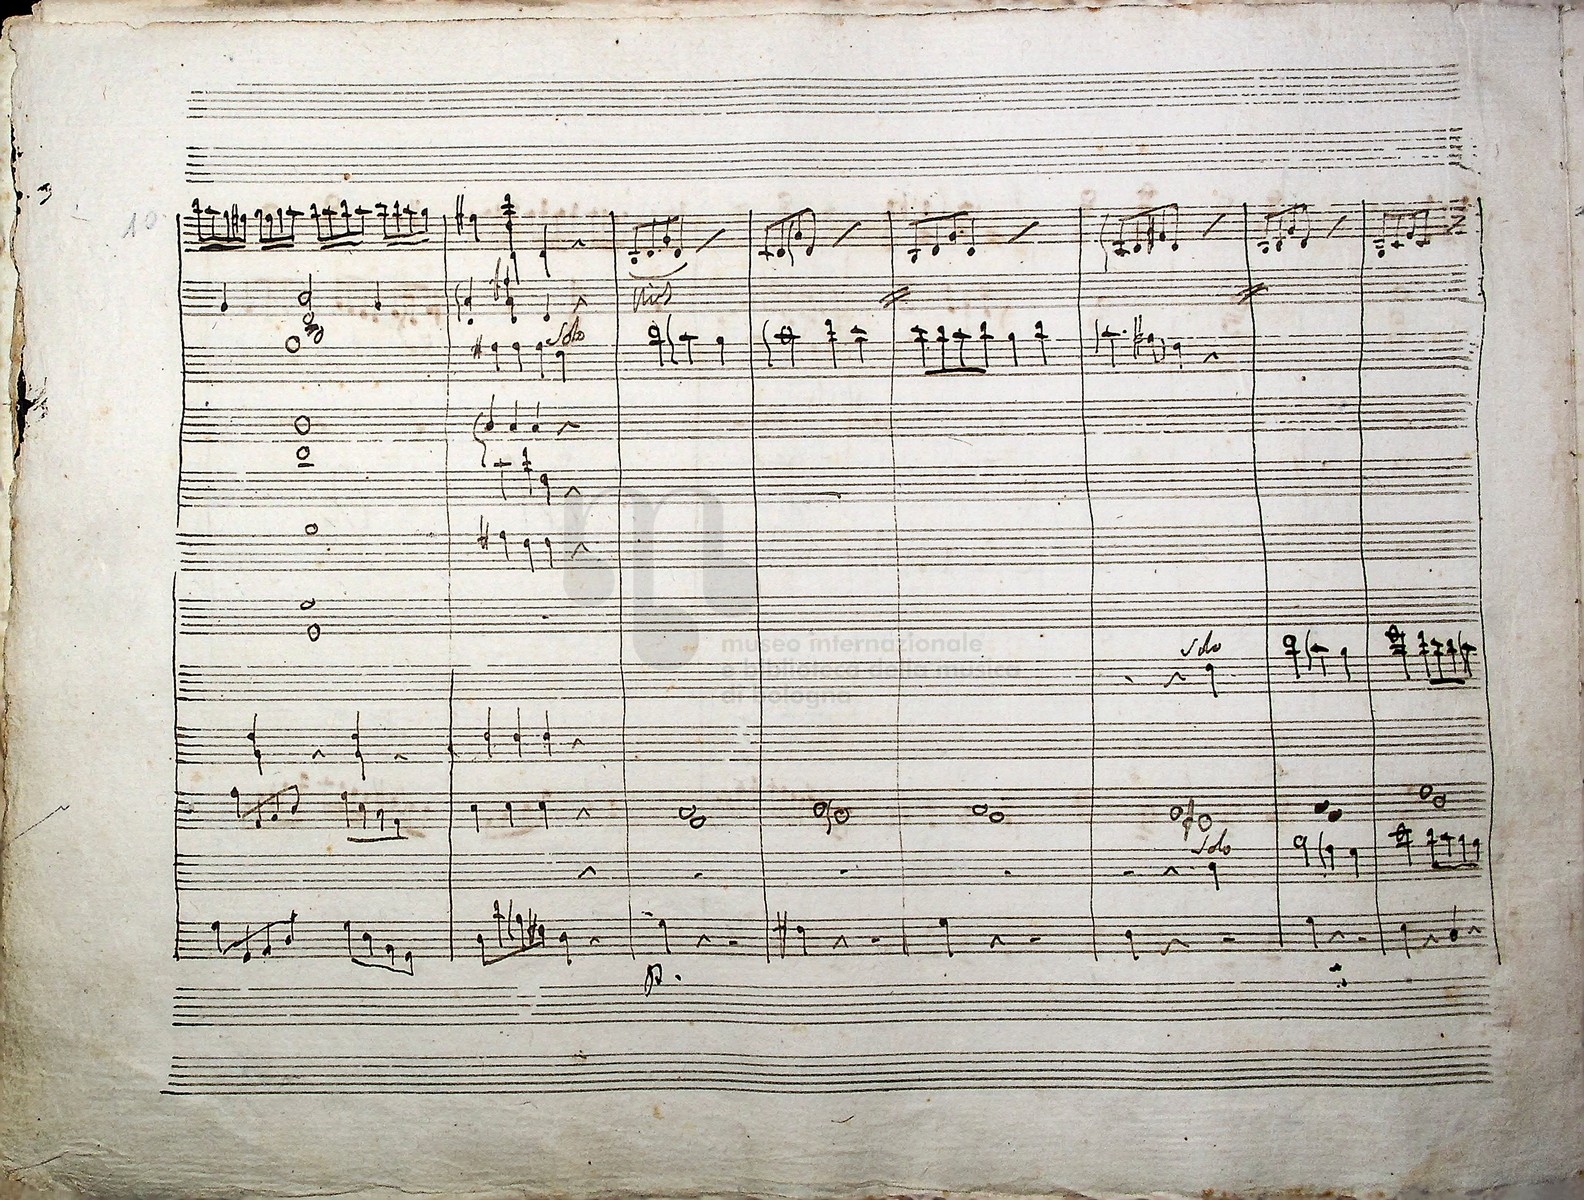 10
Solo
unis
museo internazionale
e biblioteca della musica
di bologna
Solo
Solo
p.